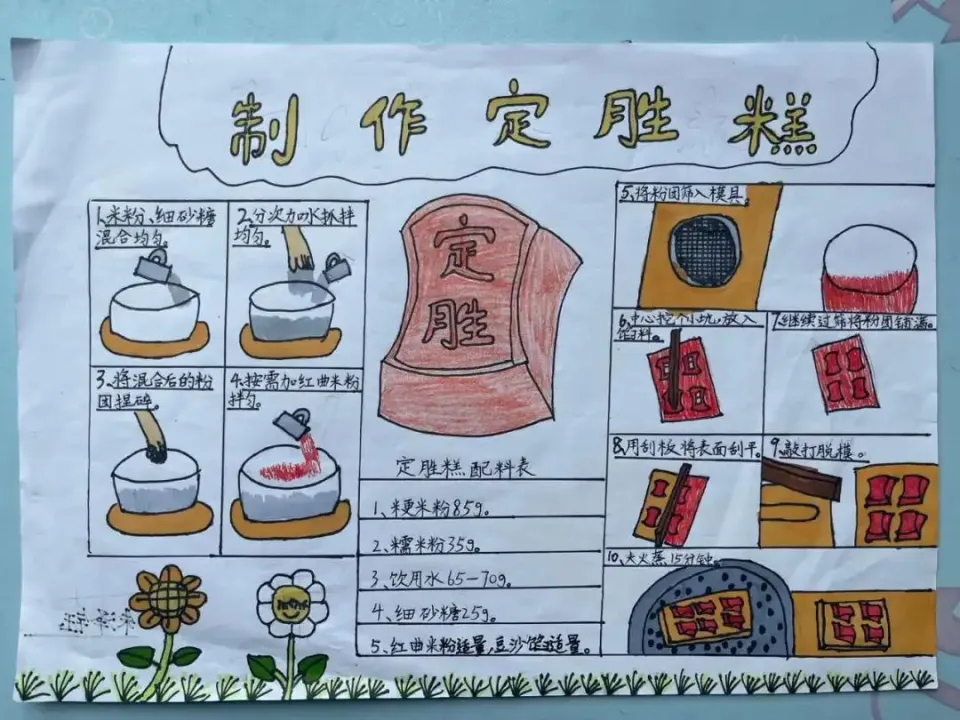 制作定胜糕
1、米粉、细砂糖
混合均匀。
2、分次加水抓拌
均匀。
3、将混合后的粉
团捏碎。
4、按需加红曲米粉
拌匀。
定
胜
定胜糕配料表
1、粳米粉85g。
2、糯米粉35g。
3、饮用水65-70g。
4、细砂糖25g。
5、红曲米粉适量,豆沙馅适量。
5、将粉团筛入模具。
6、中心挖个小坑,放入
馅料。
7、继续过筛将粉团铺满。
8、用刮板将表面刮平。
9、敲打脱模。
10、大火蒸15分钟。